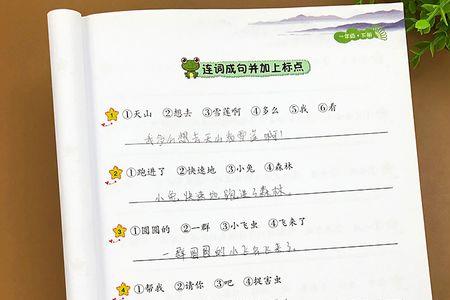 一年级·下册
连词成句并加上标点
1 ①天山 ②想去 ③雪莲啊 ④多么 ⑤我 ⑥看
我多么想去天山看雪莲啊!
2 ①跑进了 ②快速地 ③小兔 ④森林
小兔快速地跑进了森林。
3 ①圆圆的 ②一群 ③小飞虫 ④飞来了
一群圆圆的小飞虫飞来了。
4 ①帮我 ②请你 ③吧 ④捉害虫